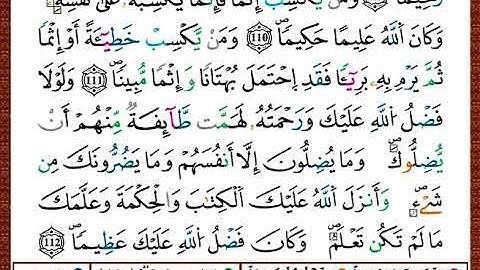 وَمَنْ يَّكْسِبِ اِثْمًا فَإِنَّمَا يَكْسِبُهُۥ عَلَىٰ نَفْسِهِۦ
وَكَانَ اَللَّهُ عَلِيمًا حَكِيمًا ۖ 110 وَمَنْ يَّكْسِبْ خَطِيٓـَٔةً أَوِ اِثْمًا
ثُمَّ يَرْمِ بِهِۦ بَرِيٓـًٔا فَقَدِ اِحْتَمَلَ بُهْتَانًا وَإِثْمًا مُّبِينًا ۖ 111 وَلَوْلَا
فَضْلُ اُللَّهِ عَلَيْكَ وَرَحْمَتُهُۥ لَهَمَّت طَّآئِفَةٌ مِّنْهُمُۥٓ أَنْ
يُّضِلُّوكَ ۖ وَمَا يُضِلُّونَ إِلَّآ أَنفُسَهُمْ وَمَا يَضُرُّونَكَ مِن
شَےْءٍ ۖ وَأَنزَلَ اَللَّهُ عَلَيْكَ اَلْكِتَٰبَ وَالْحِكْمَةَ وَعَلَّمَكَ
مَا لَمْ تَكُن تَعْلَمُ ۖ وَكَانَ فَضْلُ اُللَّهِ عَلَيْكَ عَظِيمًا ۖ 112